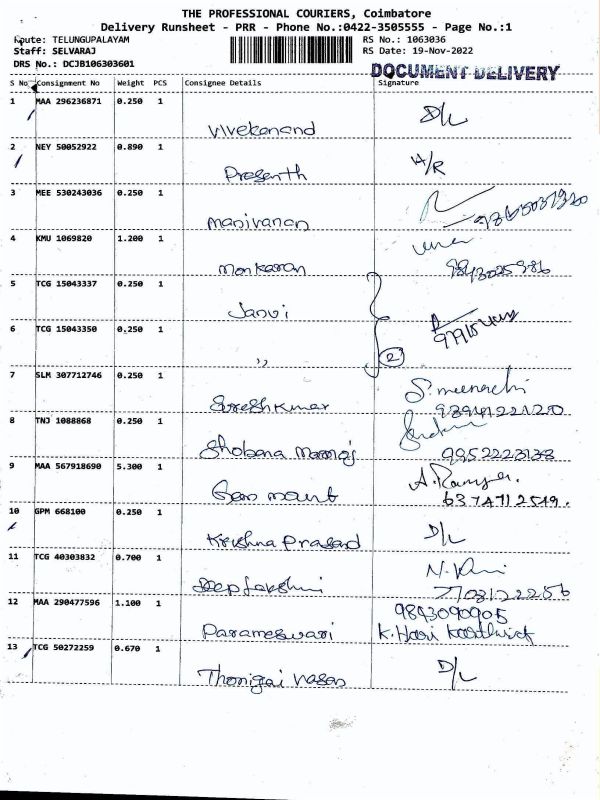 THE PROFESSIONAL COURIERS, Coimbatore
Delivery Runsheet - PRR - Phone No.:0422-3505555 - Page No.:1
Route: TELUNGUPALAYAM RS No.: 1063036
Staff: SELVARAJ RS Date: 19-Nov-2022
DRS No.: DCJB106303601 DOCUMENT DELIVERY
S No Consignment No Weight PCS Consignee Details Signature
1 MAA 296236871 0.250 1 D/L
Vivekanand
2 NEY 50052922 0.890 1 A/R
Prasanth
3 MEE 530243036 0.250 1
Manivanan
4 KMU 1069820 1.200 1
Monkaran
5 TCG 15043337 0.250 1
Janvi
6 TCG 15043350 0.250 1
,, 2
7 SLM 307712746 0.250 1 S. meenachi
Sureshkumar
8 TNJ 1088868 0.250 1
Shobana 9952223138
9 MAA 567918690 5.300 1
6374712519.
10 GPM 668100 0.250 1 D/L
Krishna Prasad
11 TCG 40303832 0.700 1
Deeplakshmi 7708122256
12 MAA 290477596 1.100 1 9843090905
Parameswari K. Hari Karthick
13 TCG 50272259 0.670 1 D/L
Thonigai Vasan